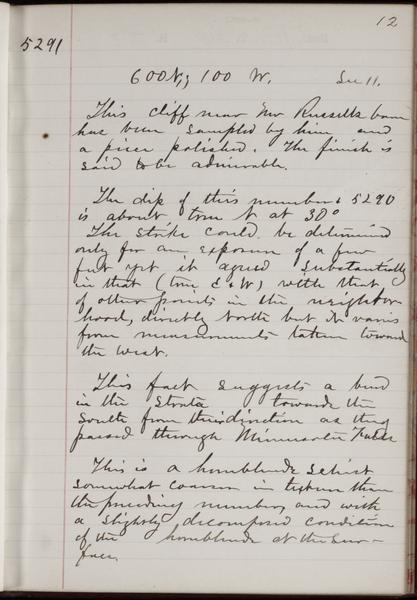 12
5291
600 N, 100 W. Sec 11.
This cliff near Mr Russells barn
has been sampled by him and
a piece polished. The finish is
said to be admirable.
The dip of this number & 5290
is about true N at 30°
The strike could be determined
only for an exposure of a few
feet yet it agreed substantially
in that (true E & W) with that
of other points in the neighbor
hood, directly north but it varies
from measurements taken toward
the west.
This fact suggests a bend
in the strata towards the
south from this direction as they
passed through Minnesota Falls
This is a hornblende schist
somewhat coarser in texture than
the preceding number, and with
a slightly decomposed condition
of the hornblende at the sur-
face.